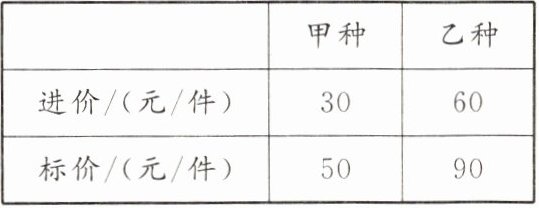 甲种 乙种
进价/(元/件) 30 60
标价/(元/件) 50 90